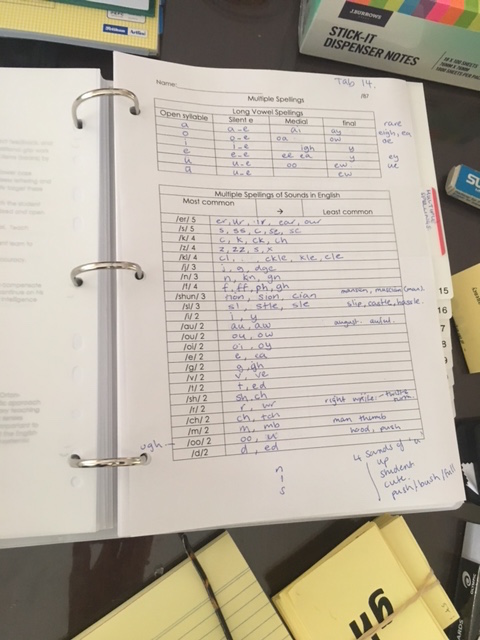 J.BURROWS
STICK-IT
DISPENSER NOTES
Tab 14.
Name:
/87
Multiple Spellings
Long Vowel Spellings
Open syllable Silent e Medial final
a a-e ai ay rare
o o-e oa ow eigh, ea
i i-e igh y oe
e e-e ee ea y ey
u u-e oo ew ue
u u-e ew
Multiple Spellings of Sounds in English
Most common → Least common
/er/ 5 er, ur, ir, ear, our
/s/ 5 s, ss, c, se, sc
/k/ 4 c, k, ck, ch
/z/ 4 z, zz, s, x
/kl/ 4 cl, ckle, kle, cle
/j/ 3 j, g, dge
/n/ 3 n, kn, gn
/f/ 4 f, ff, ph, gh
/shun/ 3 tion, sion, cian
/sl/ 3 sl, stle, sle slip, castle, hassle
/i/ 2 i, y
/au/ 2 au, aw august
/ou/ 2 ou, ow
/oi/ 2 oi, oy
/e/ 2 e, ea
/g/ 2 g, gh
/v/ 2 v, ve
/t/ 2 t, ed
/sh/ 2 sh, ch
/r/ 2 r, wr right write
/ch/ 2 ch, tch
/m/ 2 m, mb man thumb
ugh /oo/ 2 oo, u hood, push
/d/2 d, ed
4 sounds of "u"
up
student
cute
push/bush/full
n
i
s
15
16
gh